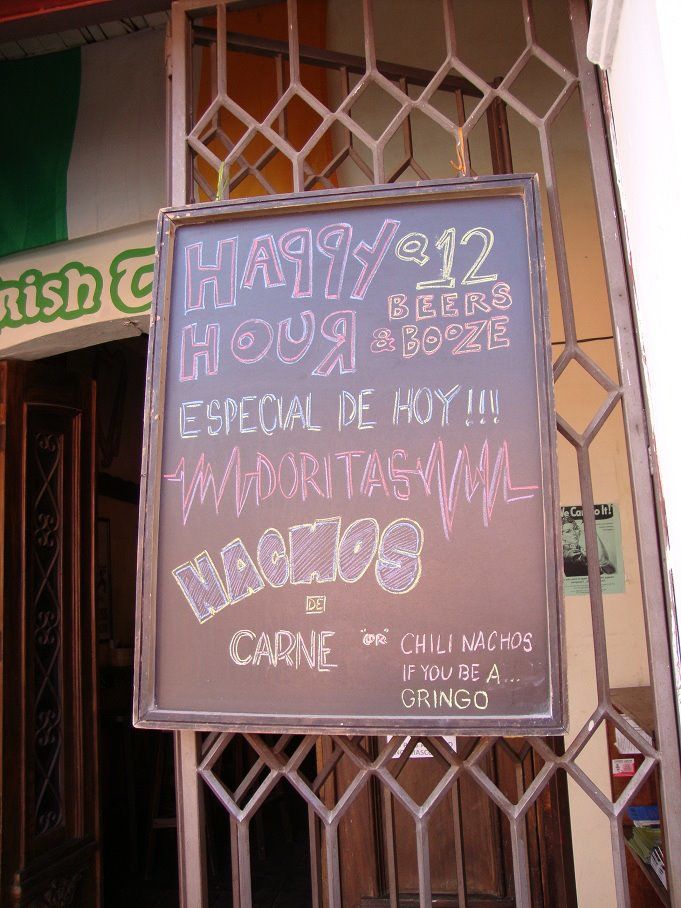 HAPPY @ 12
HOUR BEERS
& BOOZE
ESPECIAL DE HOY!!!
DORITAS
NACHOS
DE
CARNE "OR" CHILI NACHOS
IF YOU BE A...
GRINGO
rish
e Can Do It!